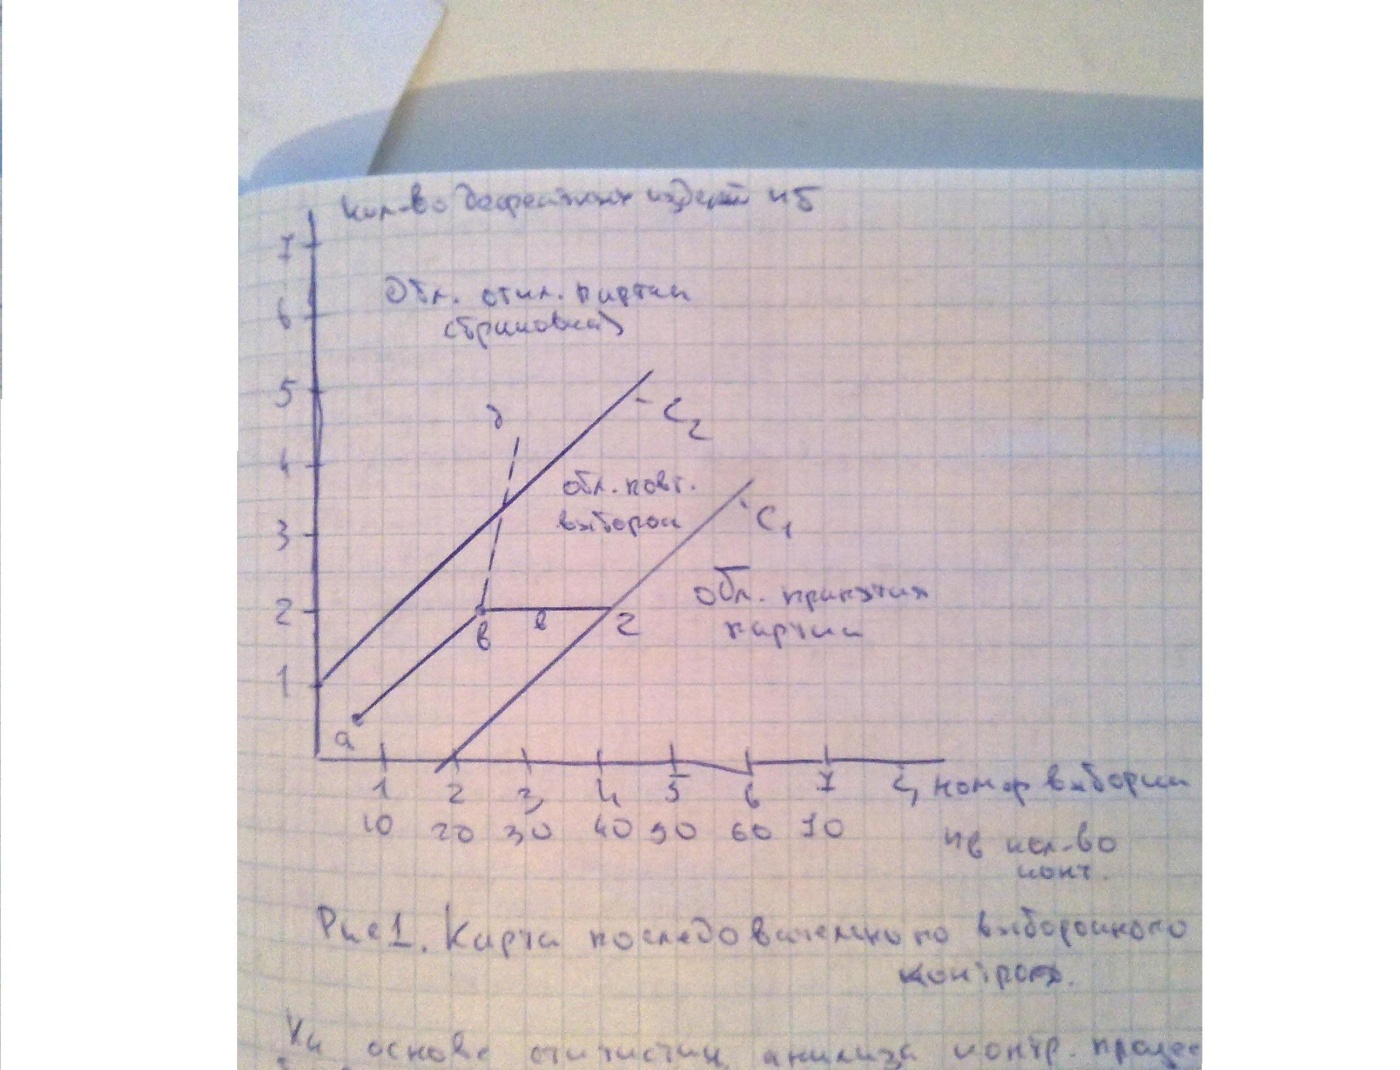 кол-во дефектных изделий нб
7
Обл. откл. партии
6
(браковка)
5
д
С2
4
обл. повт.
выборки
С1
3
обл. принятия
2
в
е
г
партии
1
а
1 2 3 4 5 6 7 i, номер выборки
10 20 30 40 50 60 70
нв кол-во
конт.
Рис1. Карта последовательного выборочного
контроля.
На основе статистич. анализа контр. процес